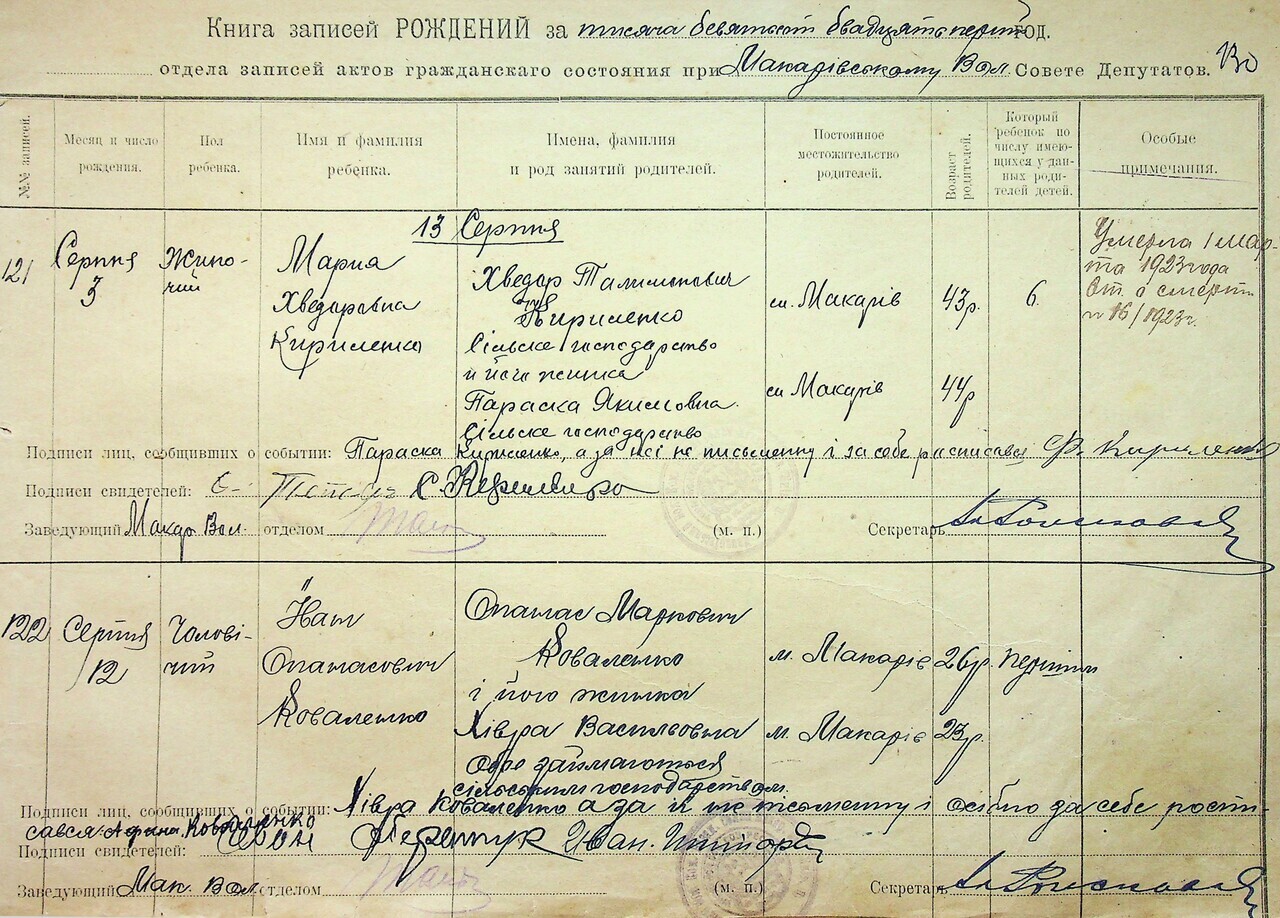 Книга записей РОЖДЕНИЙ за тисяча девятьст двадцять перш год.
отдела записей актов гражданскаго состояния при Макарівському Вол. Совете Депутатов. 130
№№ записей.
Месяц и число рождения.
Пол ребенка.
Имя и фамилия ребенка.
Имена, фамилия и род занятий родителей.
Постоянное местожительство родителей.
Возраст родителей.
Который ребенок по числу имеющихся у данных родителей детей.
Особые примечания.
13 Серпня
121
Серпня
3
Жино-
чий
Мария
Хведаровна
Кириленко
Хведар
Кириленко
Сільске господарство
и його жинка
Параска Якимовна
Сільске господарство
м. Макарів
м. Макарів
43р.
44р
6.
Умерла 1 мар-
та 1923 года
Акт о смерти
№ 16/1923г.
Подписи лиц, сообщивших о событии: Параска Кириленко, а за неі не письменну і за себе росписався Ф. Кириленко
Подписи свидетелей:
Заведующий Макар Вол. отделом (м. п.) Секретарь
122
Серпня
12
Чолові-
чий
Иван
Опанасович
Коваленко
Опанас Маркович
Коваленко
і його жинка
Хівра Васильовна
Обое займаються
сільським господарством.
м. Макарів
м. Макарів
26р.
23р.
перший
Подписи лиц, сообщивших о событии: Хівра Коваленко а за її не письменну і особно за себе роспи-
сався: Афана. Коваленко
Подписи свидетелей: Иван.
Заведующий Мак. Вол. отделом (м. п.) Секретарь